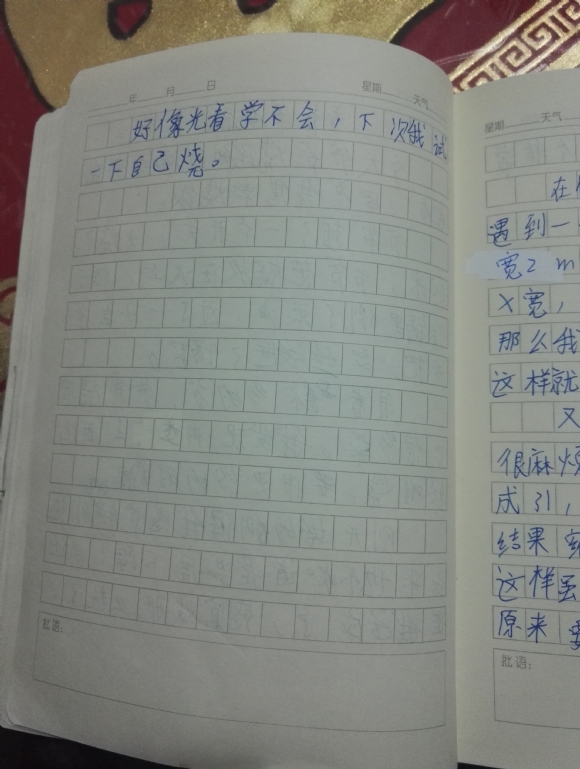 年 月 日 星期 天气
好像光看学不会，下次我试
一下自己烧。
批语：
星期 天气
在
遇到一
宽2 m
X宽，
那么我
这样就
又
很麻烦
成引，
结果
这样虽
原来 要
批语：